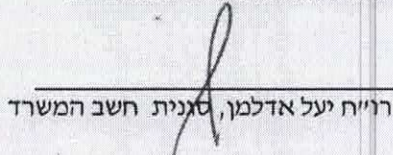 רו״ח יעל אדלמן, סגנית חשב המשרד